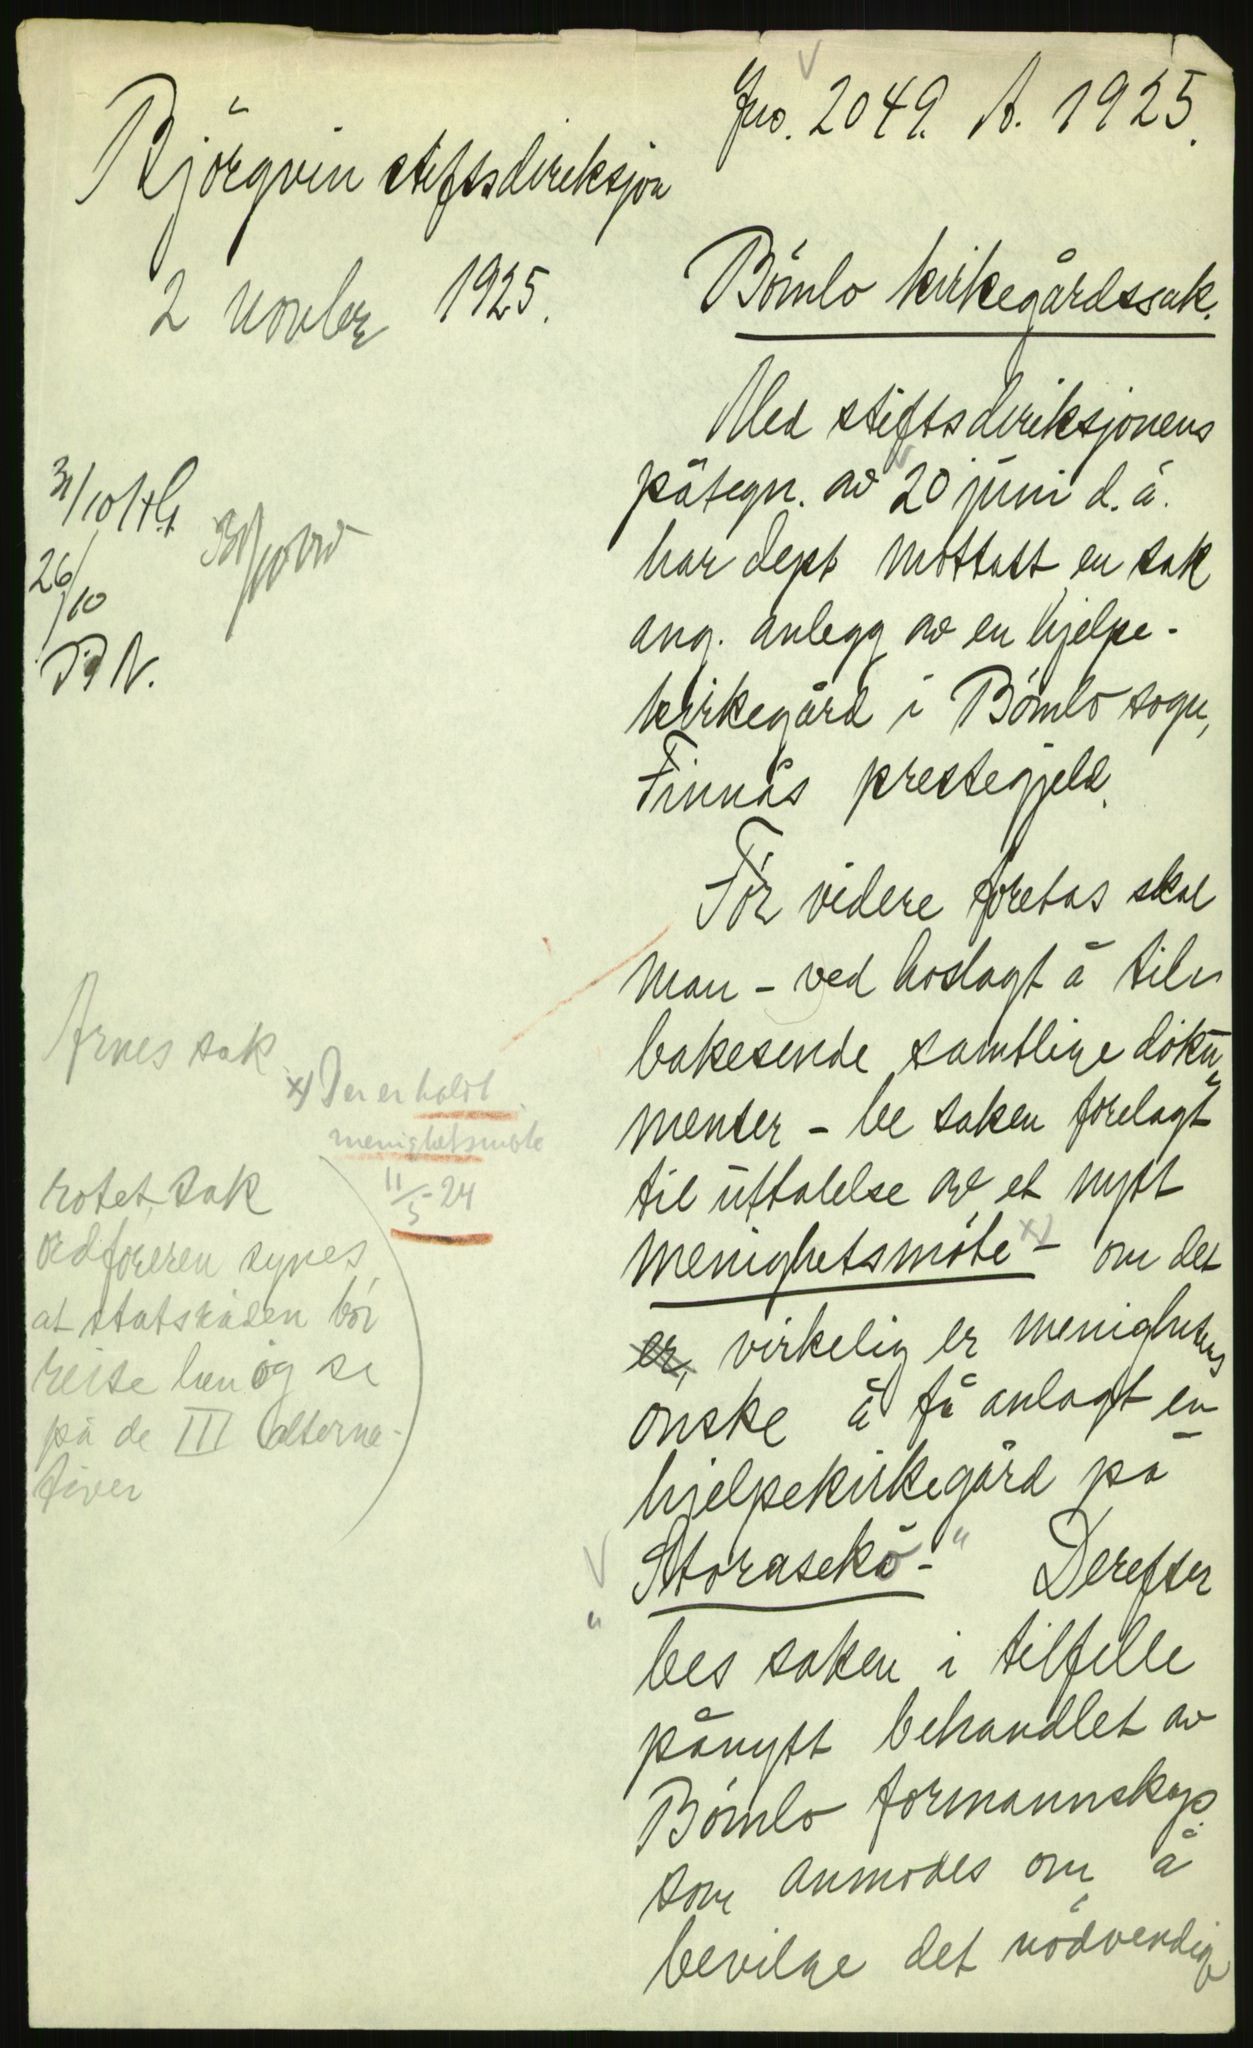 Jno. 2049. A. 1925.
Björgvin stiftsdireksjon
2 novbr 1925.
Bömlo kirkegårdssak.
Med stiftsdireksjonens
påtegn. av 20 juni d. å.
har dept mottatt en sak
ang. anlegg av en hjelpe-
kirkegård i Bömlo sogn,
Finnås prestegjeld.
För videre foretas skal
man - ved hoslagt å til-
bakesende samtlige doku-
menter - be saken forelagt
til uttalelse av et nytt
menighetsmöte x) - om det
er, virkelig er menighetens
önske å få anlagt en
hjelpekirkegård på
"Storasekö-" Derefter
bes saken i tilfelle
pånytt behandlet av
Bömlo formannskap
som anmodes om å
bevilge det nödvendige
31/10 HG
26/10
Arnes sak
x) Der er holdt
menighetsmöte
11/5-24
rotet sak
ordföreren synes
at statsråden bör
reise hen og se
på de III alterna-
tiver